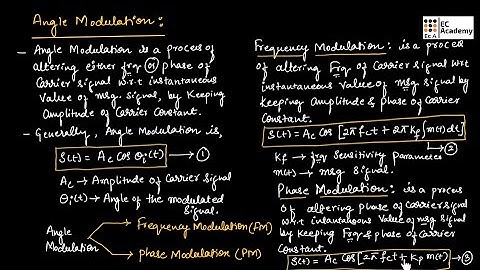 Angle Modulation:
- Angle Modulation is a process of
altering either frq (or) phase of
Carrier Signal w.r.t instantaneous
Value of msg. signal, by keeping
Amplitude of Carrier Constant.
- Generally, Angle Modulation is,
S(t) = Ac cos θi(t) → ①
Ac → Amplitude of Carrier Signal
θi(t) → Angle of the modulated
Signal.
Angle
Modulation
Frequency Modulation (FM)
phase Modulation (PM)
EC
Academy
EC A
Frequency Modulation: is a process
of altering Frq of Carrier signal wrt
instantaneous value of msg signal by
keeping Amplitude & phase of Carrier
Constant.
S(t) = Ac cos [2πfct + 2πKf ∫m(t)dt]
→ ②
Kf → frq Sensitivity parameter
m(t) → msg Signal.
Phase Modulation: is a process
of altering phase of Carrier signal
wrt instantaneous Value of msg signal
by keeping Frq & phase of Carrier
Constant.
S(t) = Ac cos [2πfct + Kp m(t)] → ③